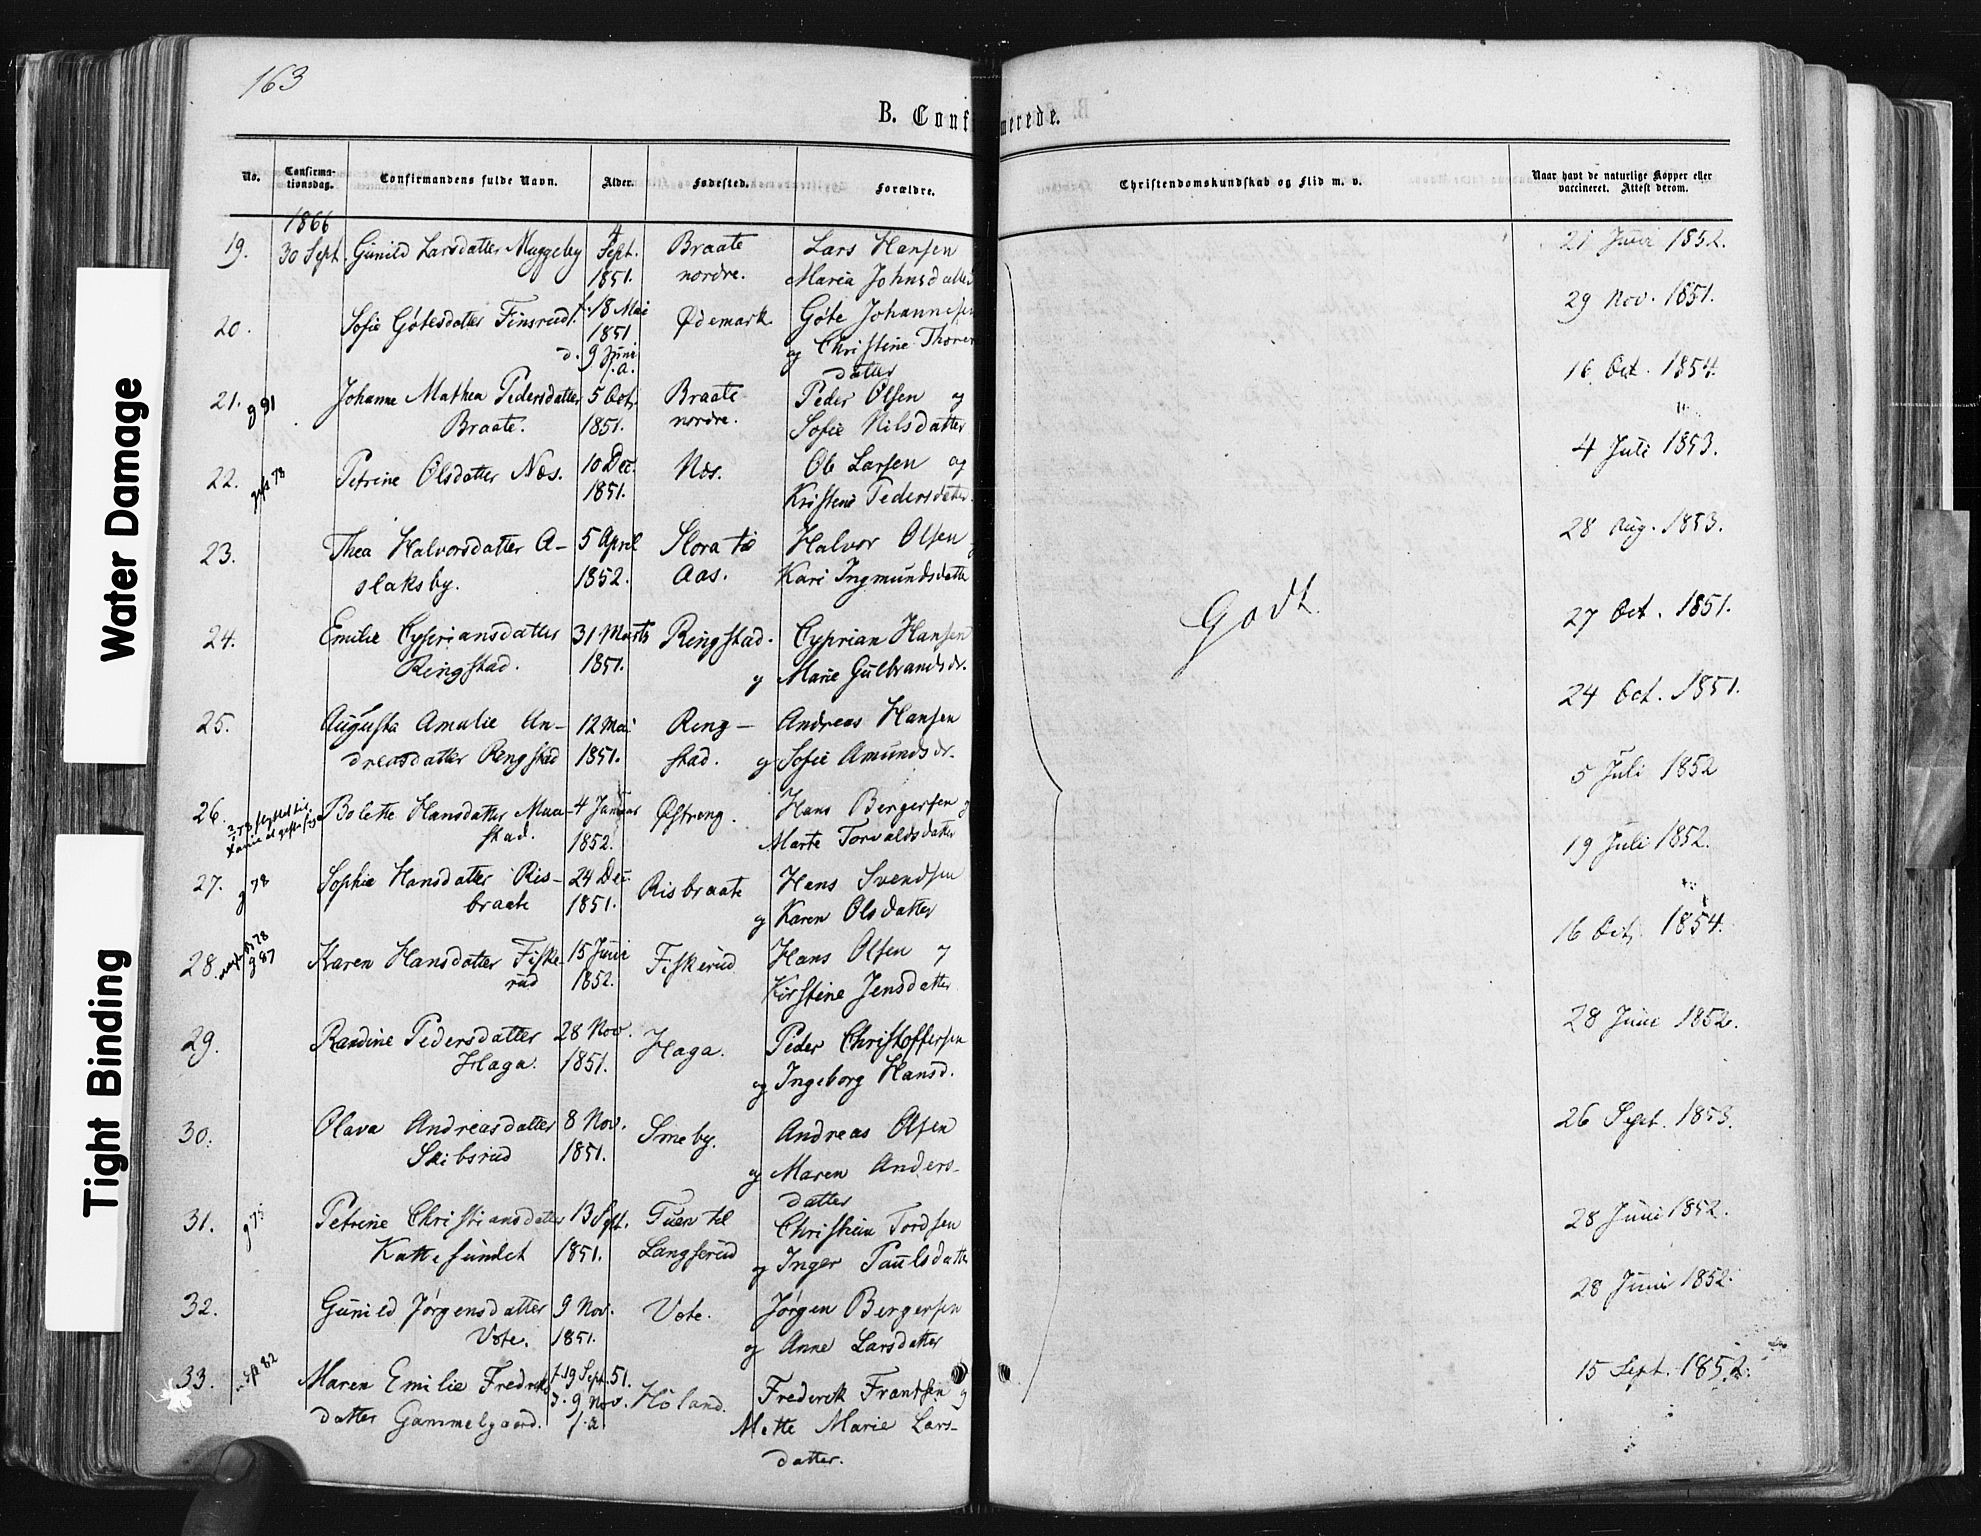 163
B. Confirmerede.
No. Confirmationsdag. Confirmandens fulde Navn. Alder. Fødested. Forældre. Christendomskundskab og Flid m. v. Naar havt de naturlige Kopper eller vaccineret. Attest derom.
1866
19. 30 Sept. Gunild Larsdatter Muggeby 4 Sept. Braate Lars Hansen 21 Juni 1852.
1851. nordre. Maria Johnsdatter
20. Sofie Gøtesdatter Finsrud f. 18 Mai Ødemark Gøte Johannesen 29 Nov. 1851.
1851 og Christine Thores
d. 9 Juni datter
s.a.
21. g 91 Johanne Mathea Pedersdatter 5 Oct. Braate Peder Olsen og 16 Oct. 1854.
Braate. 1851. nordre. Sofie Nilsdatter
22. gift 78 Petrine Olsdatter Næs. 10 Dec. Næs. Ole Larsen og 4 Juli 1853.
1851. Kristene Pedersdatter
23. Thea Halvorsdatter A- 5 April Slora til Halvor Olsen 28 Aug. 1853.
slaksby. 1852. Aas. Kari Ingmundsdatter
24. Emilie Cyprians datter 31 Marts Ringstad. Cyprian Hansen 27 Oct. 1851.
Ringstad. 1851. og Marie Gulbrandsdr.
Godt.
25. Augusta Amalie An- 12 Mai Ring- Andreas Hansen 24 Oct. 1851.
dreasdatter Ringstad 1851. stad. og Sofie Amundsdr.
26. Bolette Hansdatter Mua- 4 Januar Østreng. Hans Bergersen og 5 Juli 1852
stad. 1852. Marte Torvaldsdatter
27. g 78 Sophie Hansdatter Ris- 24 Dec Risbraate Hans Svendsen 19 Juli 1852.
braate 1851. og Karen Olsdatter
28. g 87 Karen Hansdatter Fiske- 15 Juni Fiskerud Hans Olsen og 16 Oct. 1854.
rud 1852. Kirstine Jensdatter
29. Randine Pedersdatter 28 Nov. Haga. Peder Christoffersen 28 Juni 1852.
Haga. 1851. og Ingeborg Hansd.
30. Olava Andreasdatter 8 Nov. Smeby. Andreas Olsen 26 Sept. 1853.
Skibsrud 1851. og Maren Anders-
datter
31. Petrine Christiansdatter 13 Sept. Tuen til Christian Tordsen 28 Juni 1852.
Kattesundet 1851. Langserud og Inger Paulsdatter
32. Gunild Jørgensdatter 9 Nov. Vote. Jørgen Bergersen 28 Juni 1852.
Vote. 1851. og Anne Larsdatter
33. gift 82 Maren Emilie Fredriks f. 19 Sept. 51. Høland. Frederik Frantsen og 15 Sept. 1852.
datter Gammelgaard. d. 9 Nov. Mette Marie Lars-
s.a datter.
Water Damage
Tight Binding